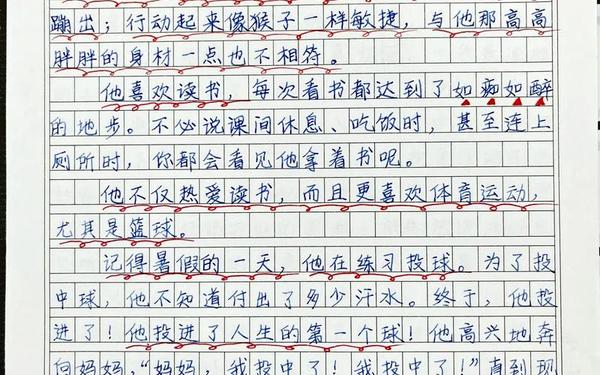 蹦出；行动起来像猴子一样敏捷，与他那高高
胖胖的身材一点也不相符。
他喜欢读书，每次看书都达到了如痴如醉
的地步。不必说课间休息、吃饭时，甚至连上
厕所时，你都会看见他拿着书呢。
他不仅热爱读书，而且更喜欢体育运动，
尤其是篮球。
记得暑假的一天，他在练习投球。为了投
中球，他不知道付出了多少汗水。终于，他投
进了！他投进了人生的第一个球！他高兴地奔
向妈妈，“妈妈，我投中了！我投中了！”直到现